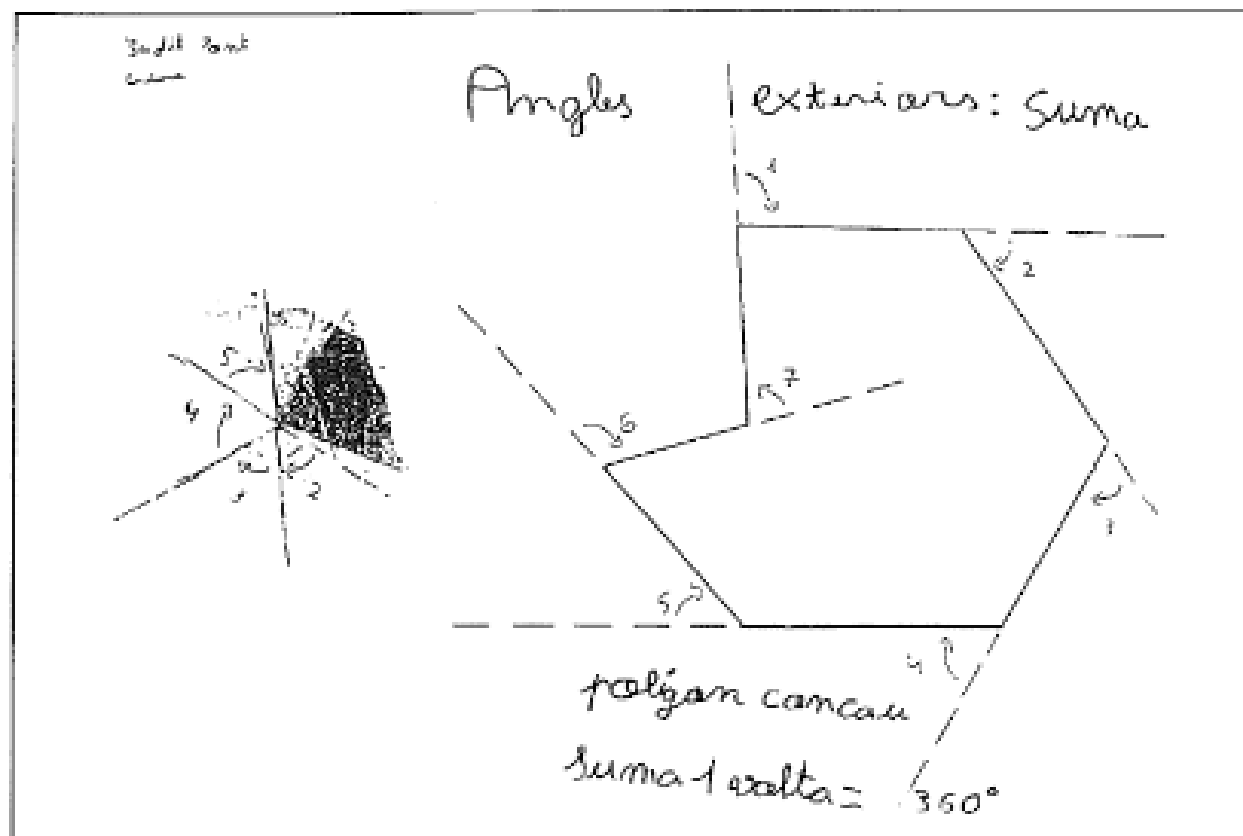 Angles exteriors: Suma
1
2
7
6
5
4
5
4
2
polígon concau
suma 1 volta = 360°